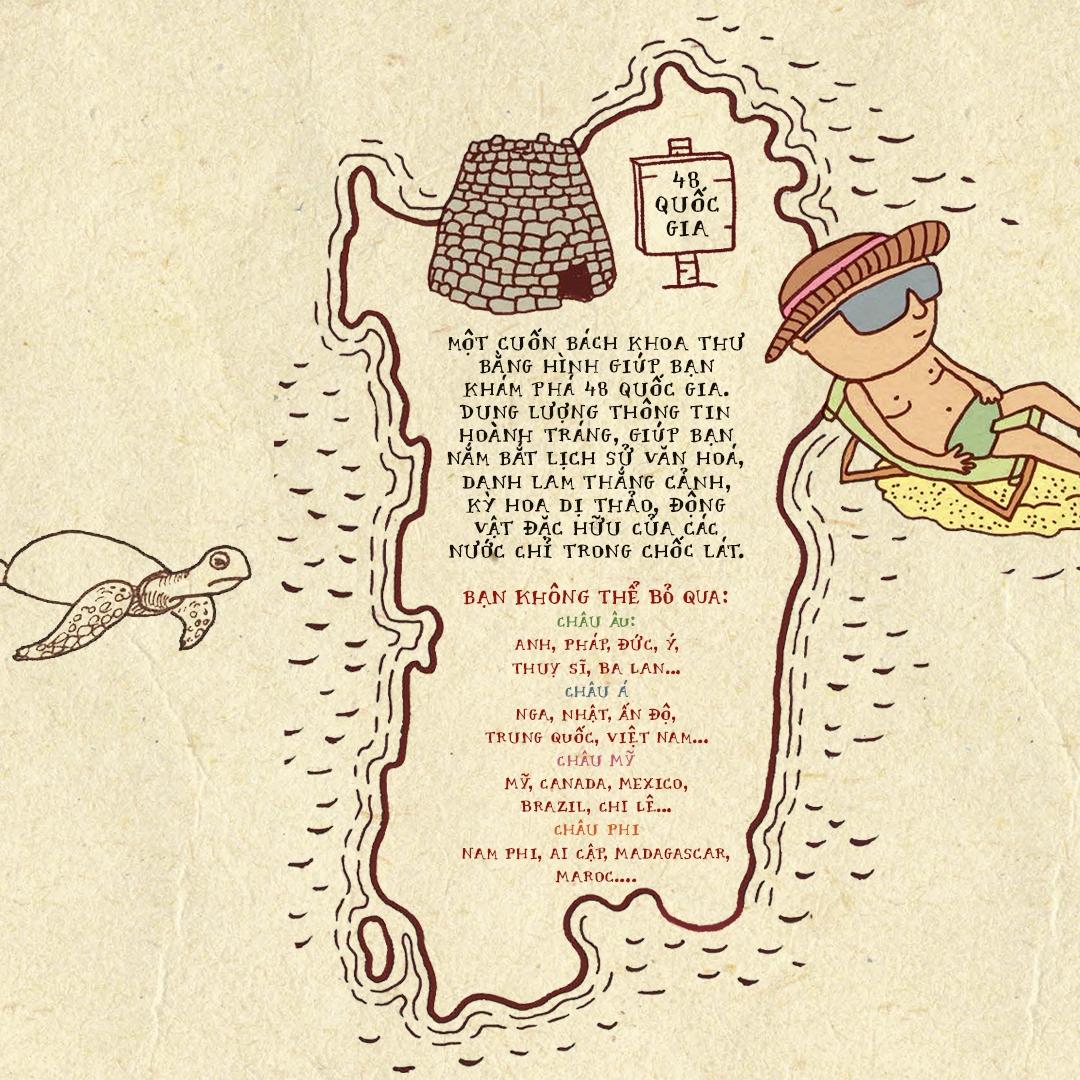 48
QUỐC
GIA
MỘT CUỐN BÁCH KHOA THƯ
BẰNG HÌNH GIÚP BẠN
KHÁM PHÁ 48 QUỐC GIA.
DUNG LƯỢNG THÔNG TIN
HOÀNH TRÁNG, GIÚP BẠN
NẮM BẮT LỊCH SỬ VĂN HOÁ,
DANH LAM THẮNG CẢNH,
KỲ HOA DỊ THẢO, ĐỘNG
VẬT ĐẶC HỮU CỦA CÁC
NƯỚC CHỈ TRONG CHỐC LÁT.
BẠN KHÔNG THỂ BỎ QUA:
CHÂU ÂU:
ANH, PHÁP, ĐỨC, Ý,
THUỴ SĨ, BA LAN...
CHÂU Á
NGA, NHẬT, ẤN ĐỘ,
TRUNG QUỐC, VIỆT NAM...
CHÂU MỸ
MỸ, CANADA, MEXICO,
BRAZIL, CHI LÊ...
CHÂU PHI
NAM PHI, AI CẬP, MADAGASCAR,
MAROC....